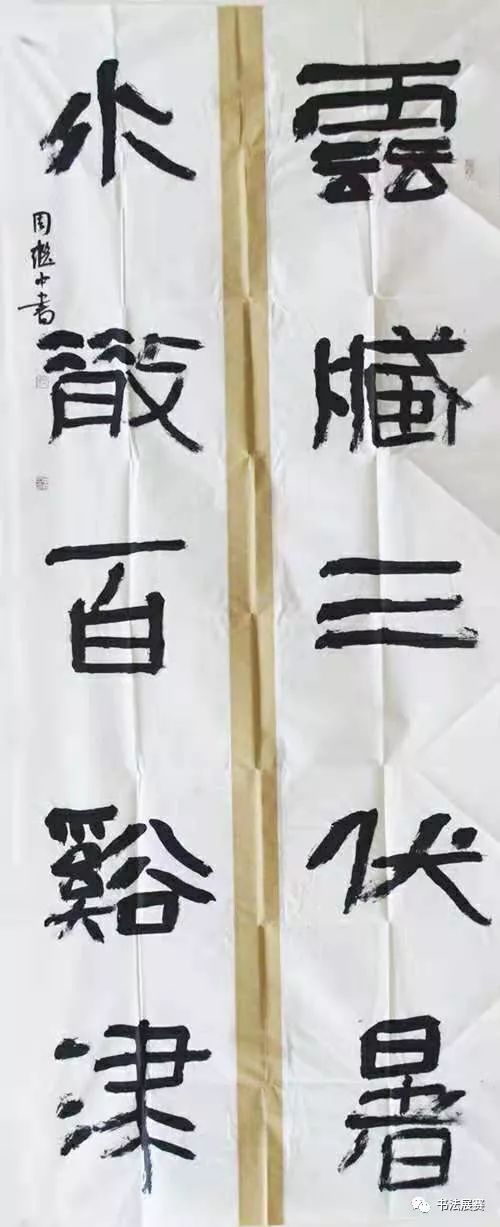 雲藏三伏暑
水散百谿津
周繼中書
书法展赛